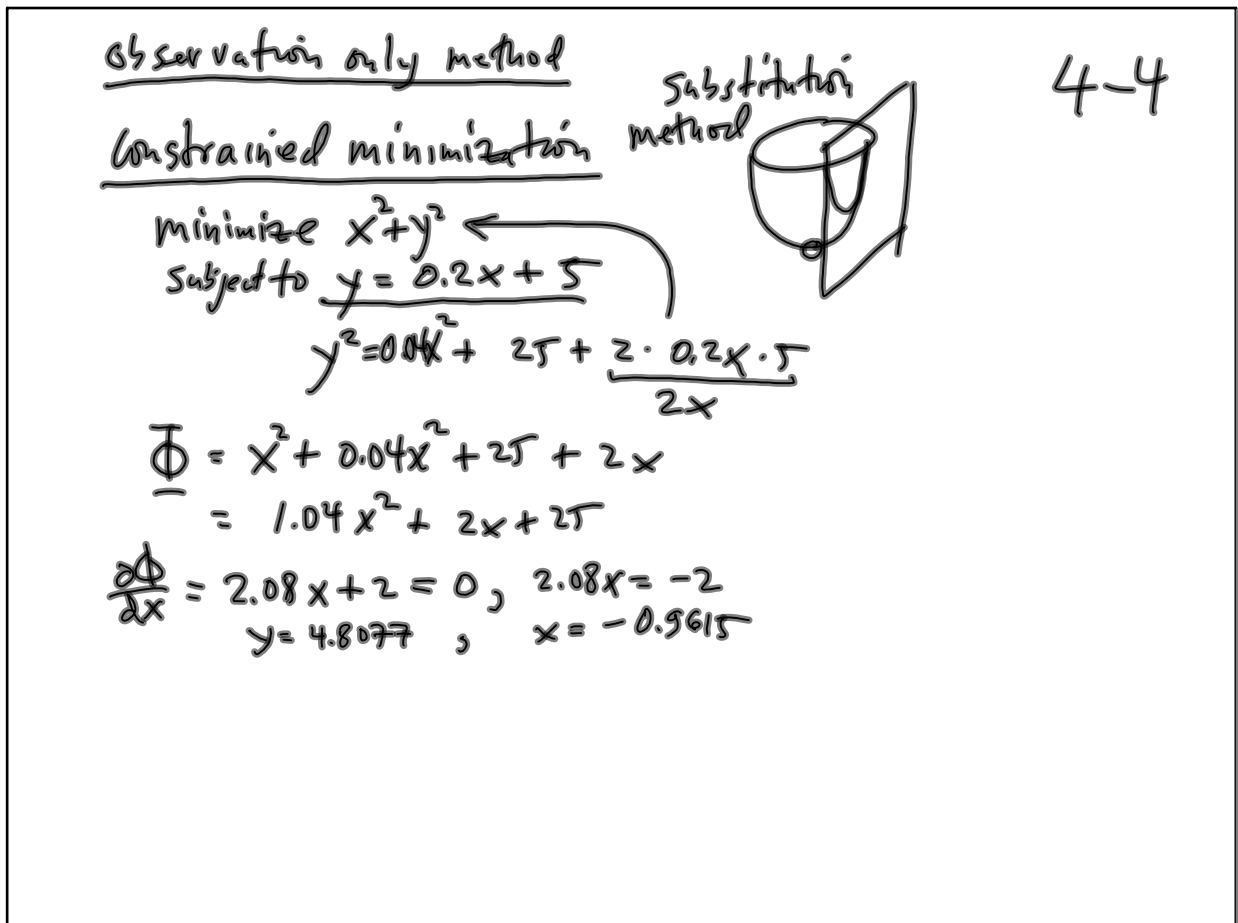 observation only method
4-4
substitution
method
Constrained minimization
minimize x²+y²
subject to y = 0.2x + 5
y²=0.04x² + 25 + 2 · 0.2x · 5
2x
Φ = x² + 0.04x² + 25 + 2x
= 1.04x² + 2x + 25
∂Φ/∂x = 2.08x + 2 = 0, 2.08x = -2
y = 4.8077 , x = -0.9615